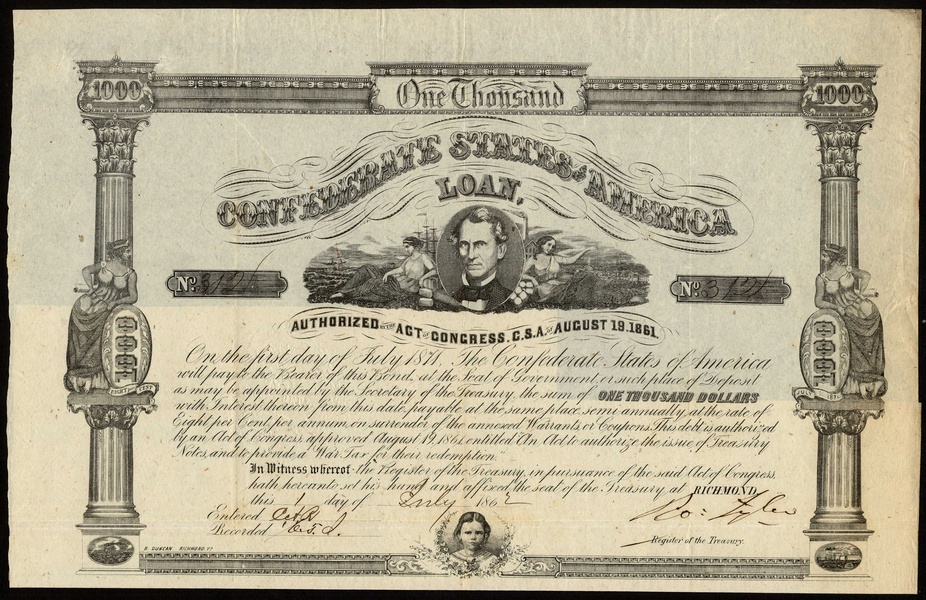 1000
One Thousand
1000
CONFEDERATE STATES OF AMERICA
LOAN,
No 3124
No 3124
AUTHORIZED BY THE ACT OF CONGRESS, C.S.A. OF AUGUST 19.1861.
On the first day of July 1871, The Confederate States of America
will pay to the Bearer of this Bond, at the Seat of Government, or such place of Deposit
as may be appointed by the Secretary of the Treasury, the sum of ONE THOUSAND DOLLARS
with Interest thereon from this date, payable at the same place, semi annually, at the rate of
Eight per Cent, per annum, on surrender of the annexed Warrants, or Coupons. This debt is authorized
by an Act of Congress, approved August 19, 1861, entitled "An Act to authorize the issue of Treasury
Notes, and to provide a War Tax for their redemption."
In Witness whereof the Register of the Treasury, in pursuance of the said Act of Congress,
hath hereunto set his hand and affixed the seal of the Treasury, at RICHMOND,
this 1 day of July 1862
Entered
Recorded
Ro: Tyler
Register of the Treasury.
1000
EIGHT PER CENT
1000
B. DUNCAN RICHMOND. VA